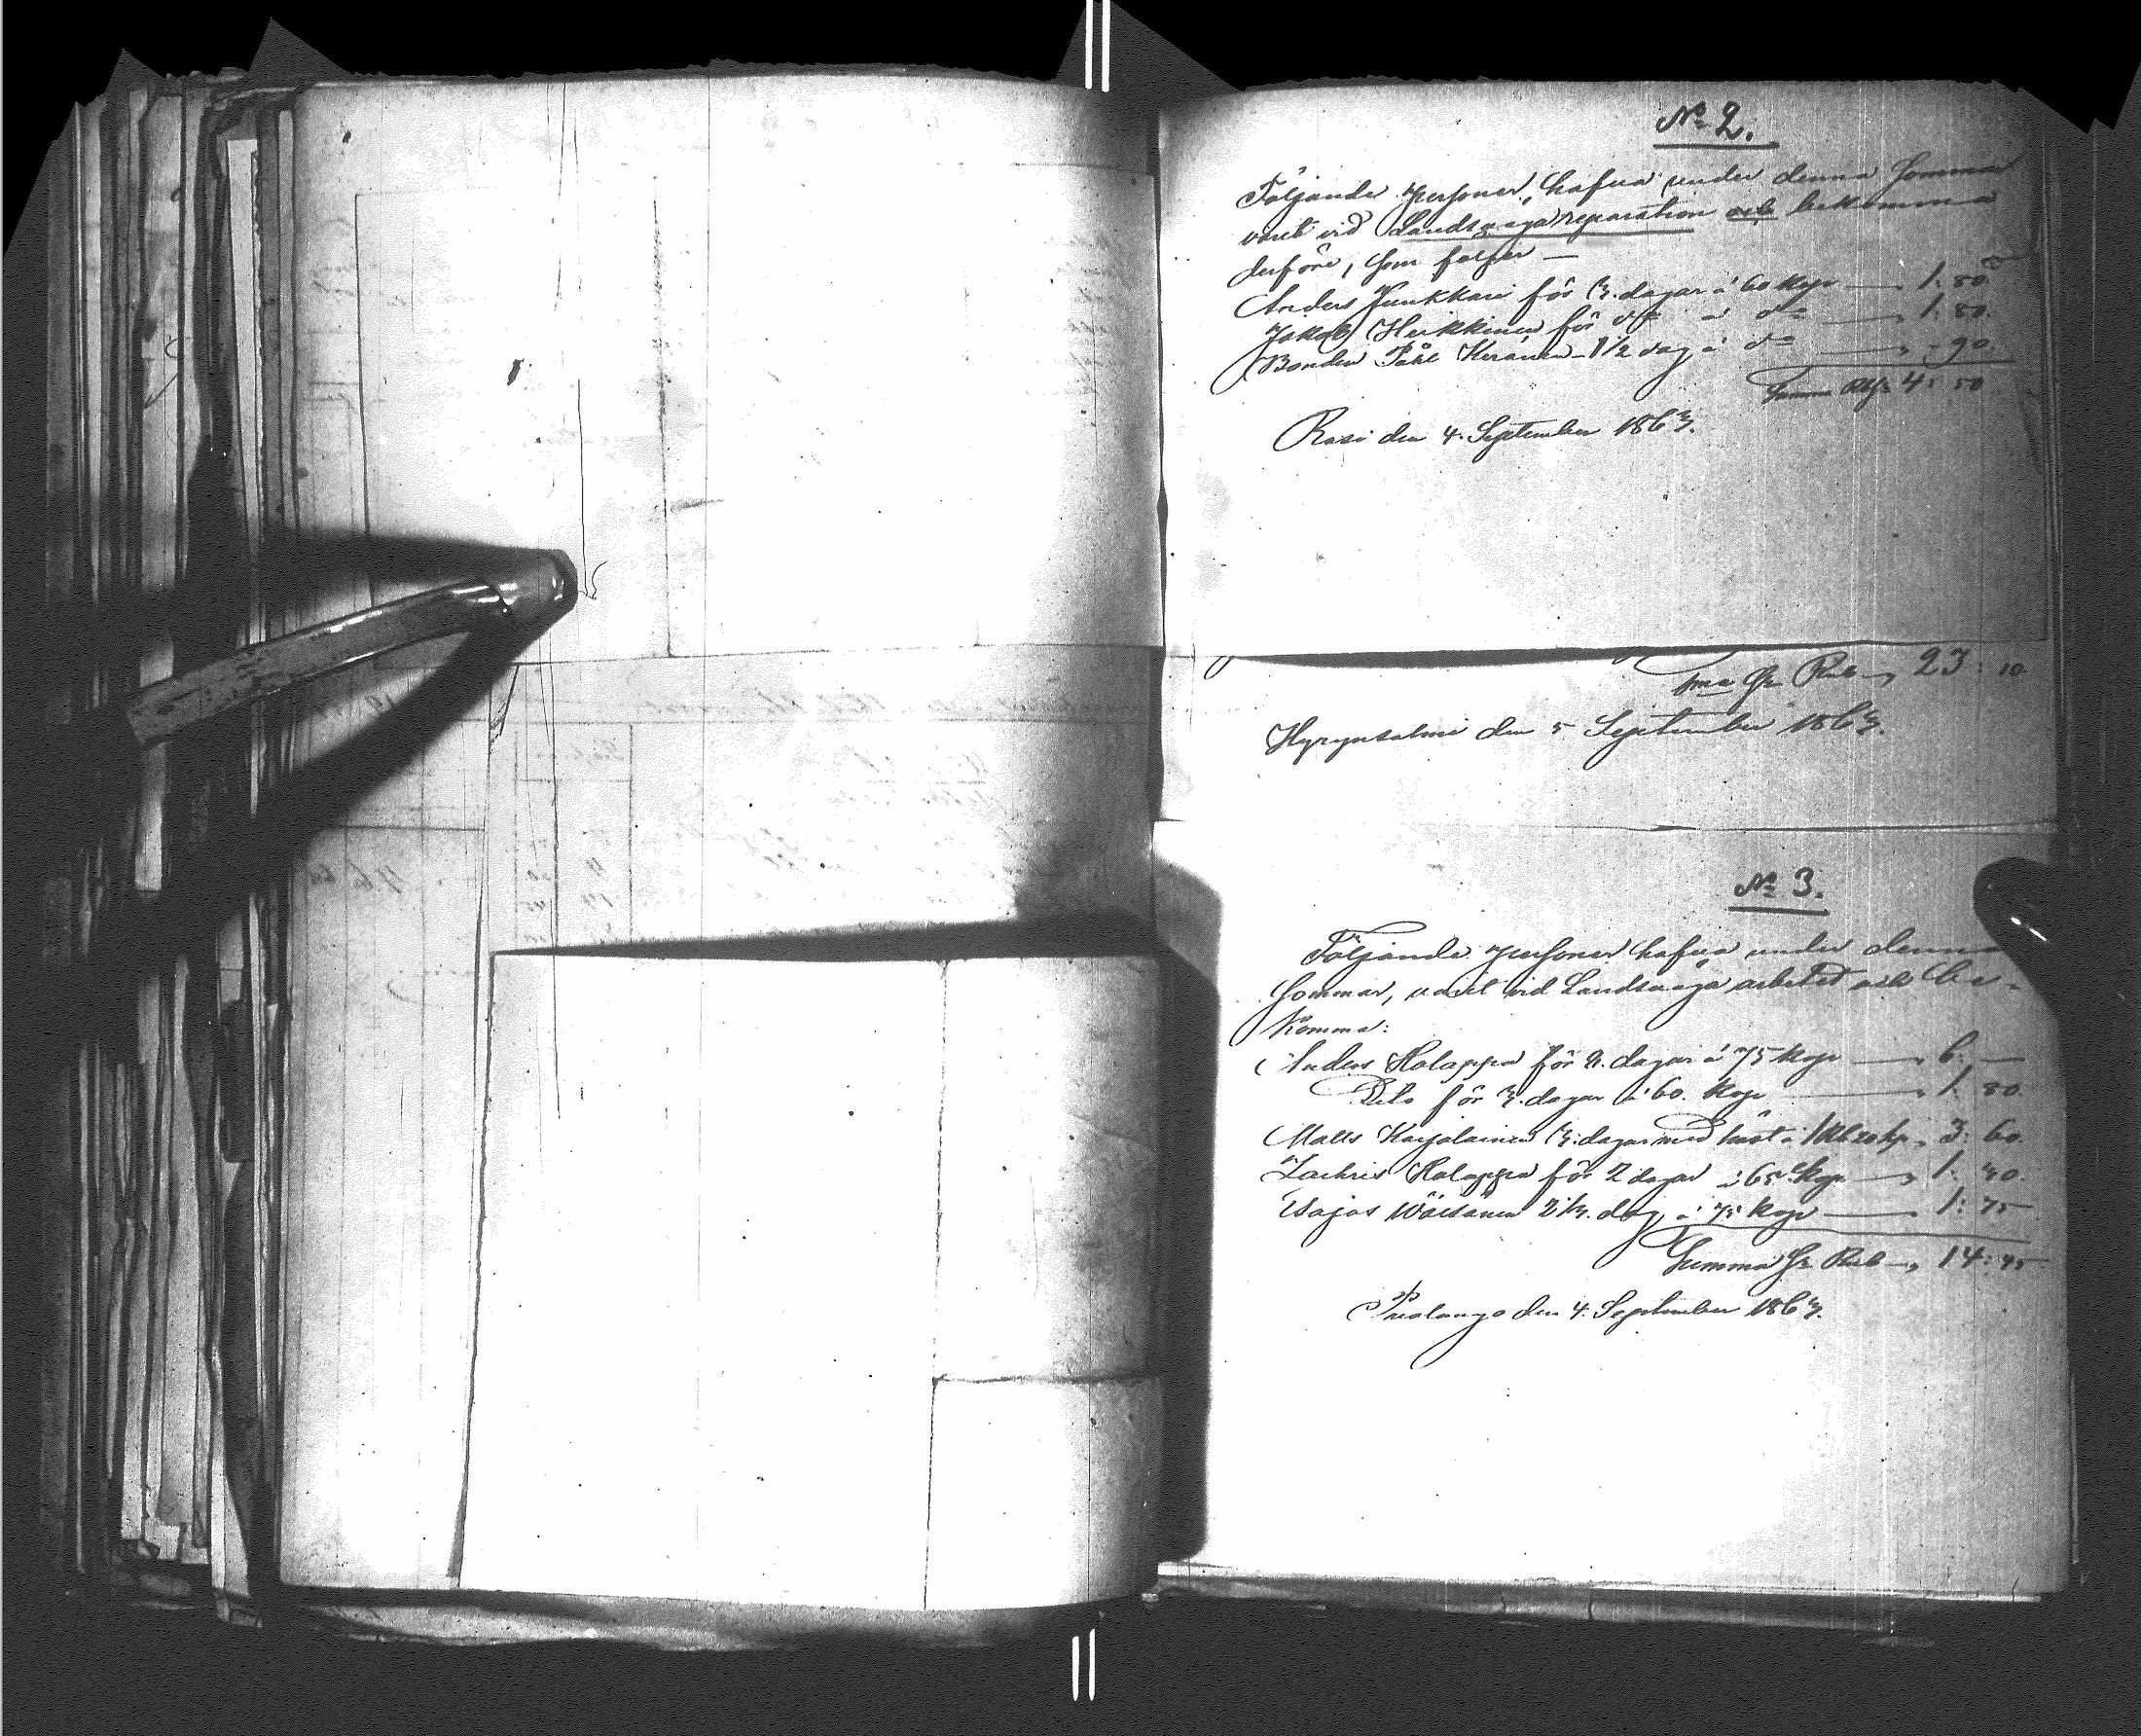 № 2.
Följande personer, hafva under denna Sommar
varit vid Landsväga reparation och bekomma
derföre, som följer —
Anders Junkkari för 3. dagar á 60 kop — 1: 80.
Jakob Heikkinen för d:o á d:o — 1: 80.
Bonden Påhl Keränen - 1 1/2 dag á d:o — " - 90.
Summa Rbl Sr 4: 50
Rasi den 4. September 1863.
Sma Sr Rub — 23: 10.
Hyrynsalmi den 5 September 1863.
№ 3.
Följande personer hafva under denna
Sommar, varit vid Landsväga arbetet och be-
komma:
Anders Halappa för 8. dagar á 75 kop — 6. —
Dito för 3. dagar á 60. kop — 1. 80.
Matts Karjalainen 3. dagar med häst á 1 Rb 20 kp. 3: 60.
Zachris Halappa för 2 dagar á 65 kop — 1. 30.
Esajas Wäisänen 2 1/3. dag, á 75 kop — 1: 75
Summa Sr Rub — 14: 45
Puolango den 4. September 1863.